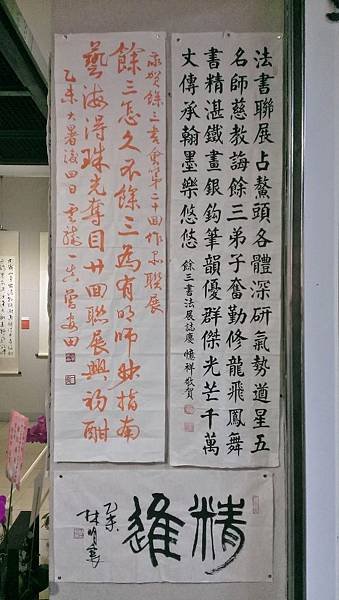 法書聯展占鰲頭各體深研氣勢遒星五
名師慈教誨餘三弟子奮勤修龍飛鳳舞
書精湛鐵畫銀鈎筆韻優群傑光芒千萬
丈傳承翰墨樂悠悠 餘三書法展誌慶 憶祥敬賀
賀餘三書會第二十回作品聯展
餘三怎久不餘三為有明師妙指南
藝海得珠光奪目廿回聯展興初酣
乙未大暑後四日
精進
乙未
林明